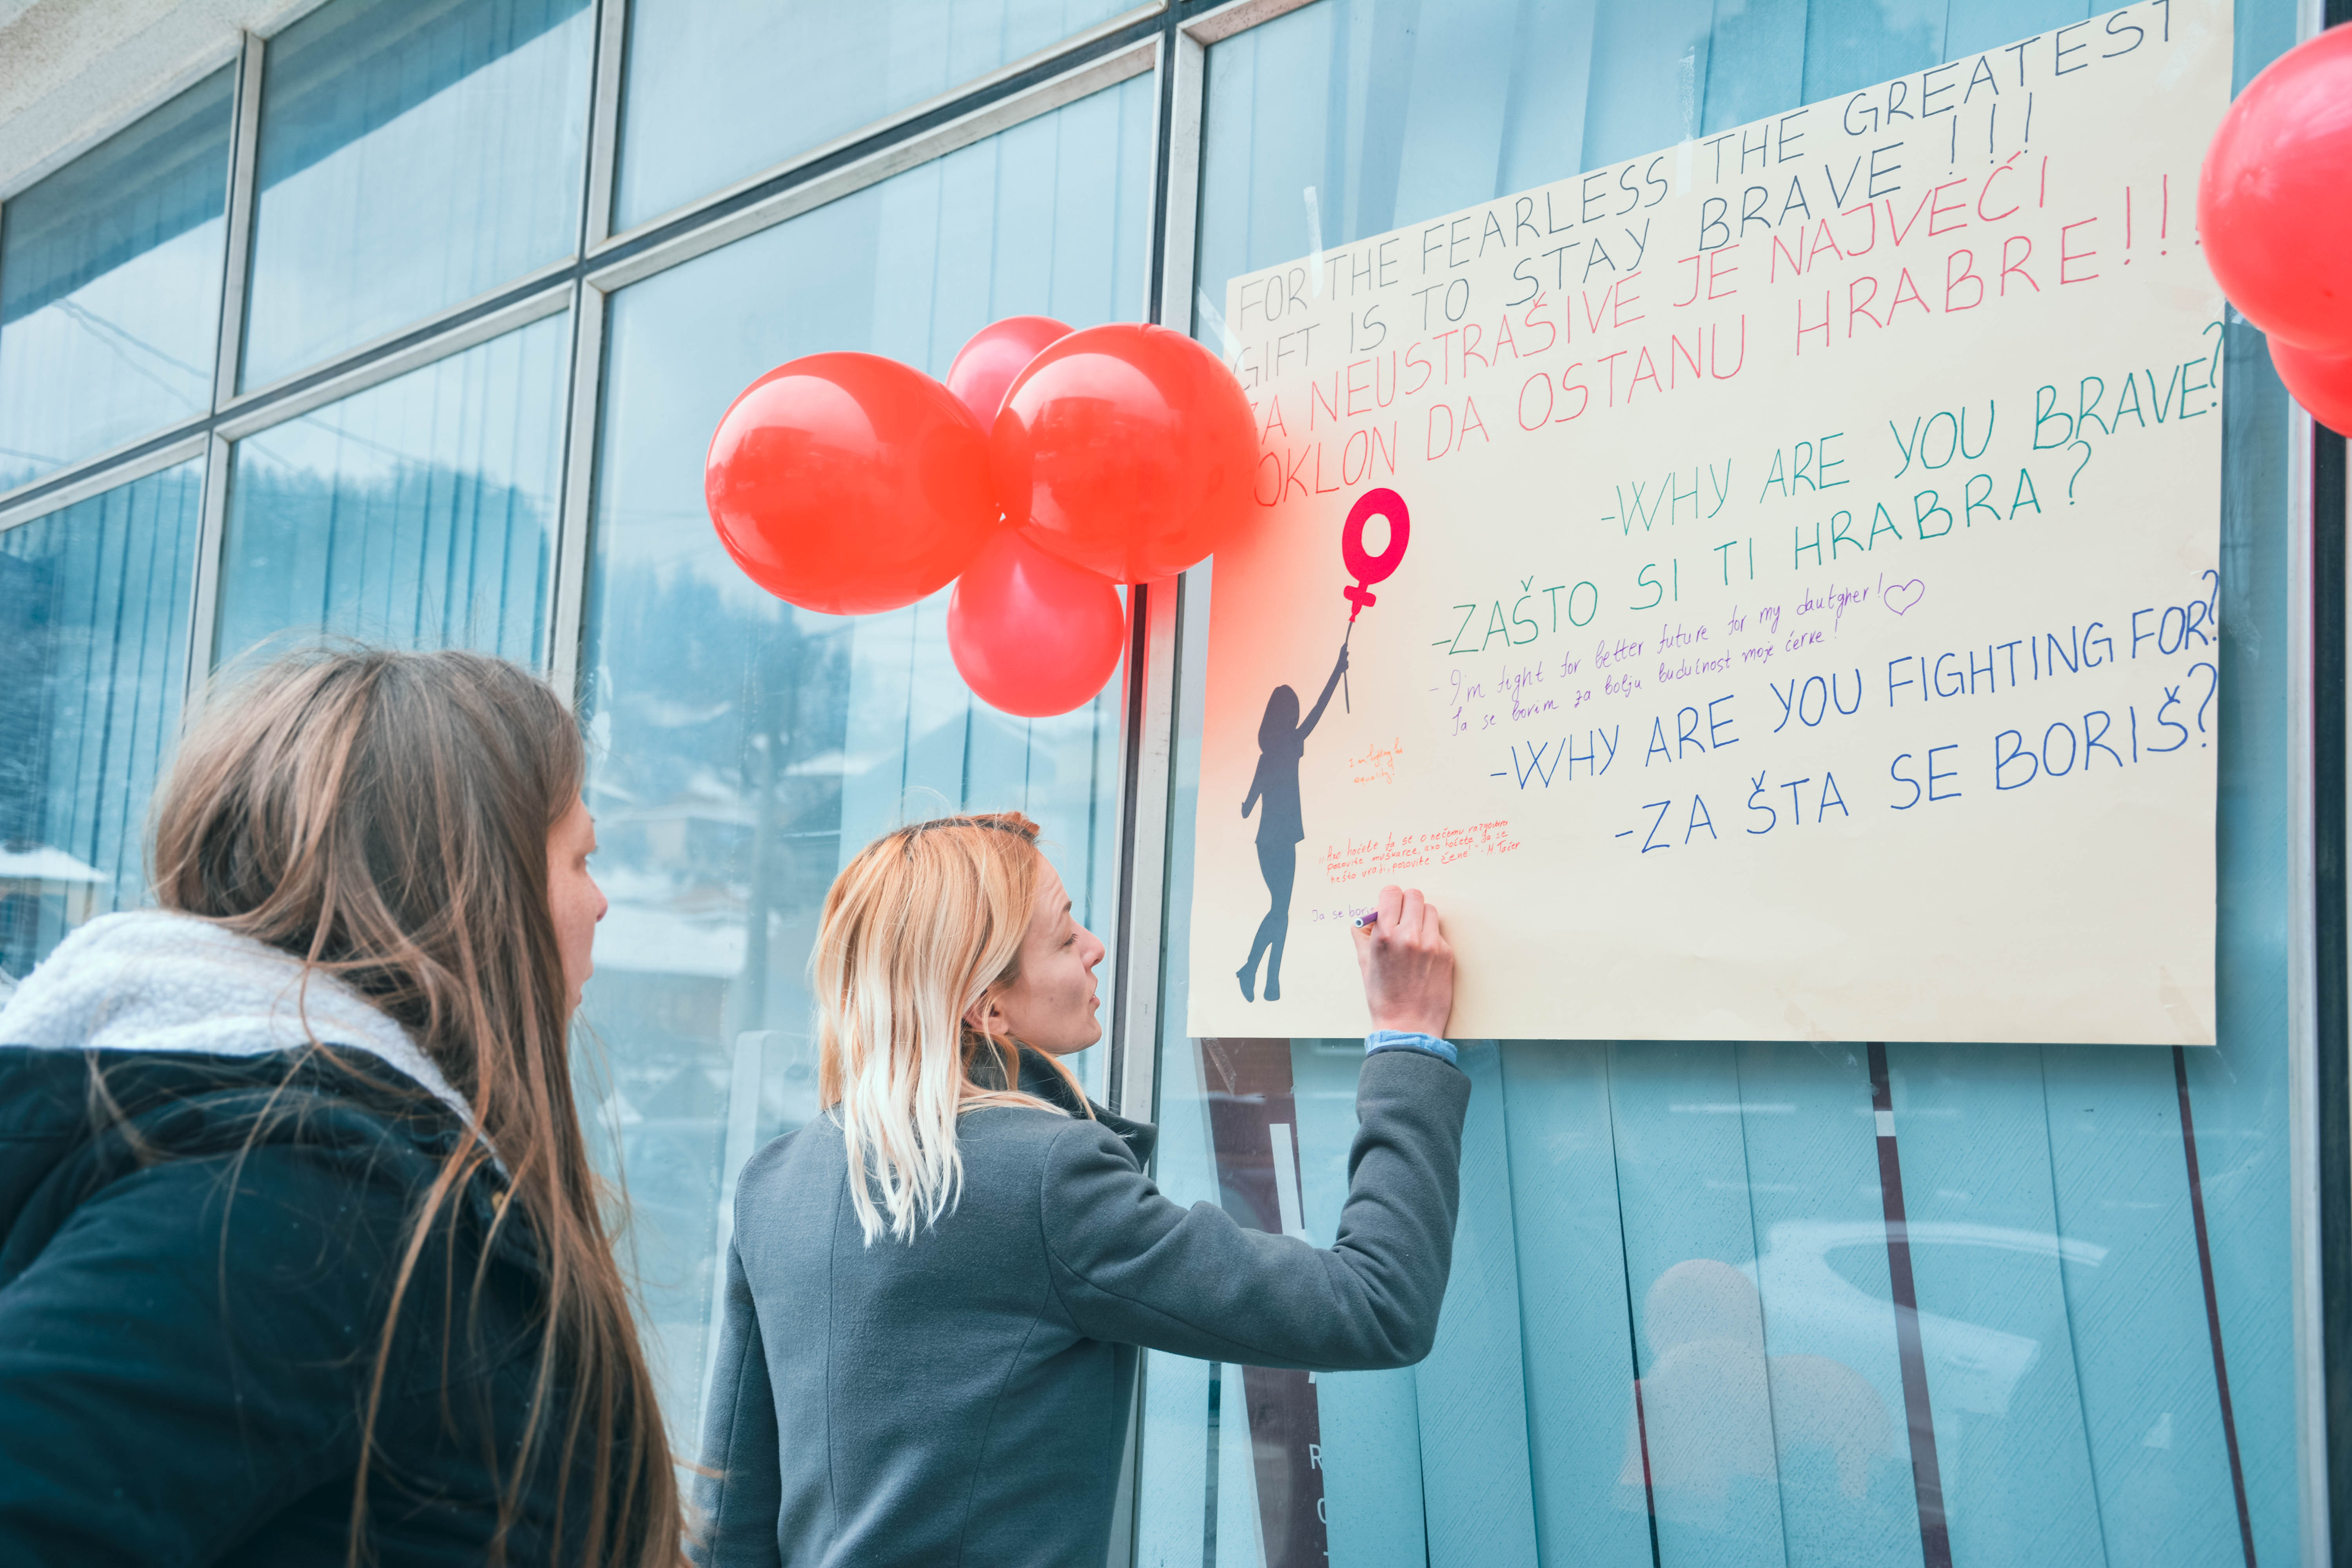 FOR THE FEARLESS THE GREATEST
GIFT IS TO STAY BRAVE !!!
ZA NEUSTRAŠIVE JE NAJVEĆI
OKLON DA OSTANU HRABRE!!!
-WHY ARE YOU BRAVE?
-ZAŠTO SI TI HRABRA?
- I'm fight for better future for my dautgher!
Ja se borim za bolju budućnost moje ćerke!
-WHY ARE YOU FIGHTING FOR?
-ZA ŠTA SE BORIŠ?
equality!
"Ako hoćete da se o nečemu razgovara
pozovite muškarce, ako hoćete da se
nešto uradi, pozovite žene!" - M. Tačer
Ja se bori